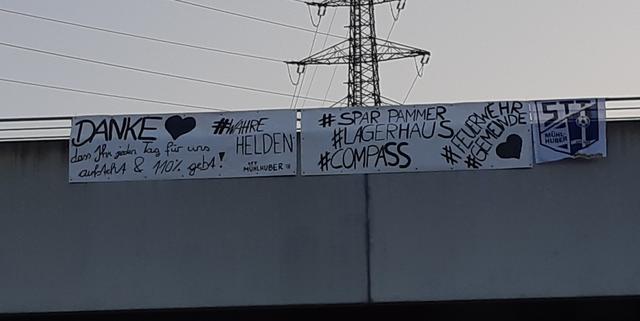 DANKE #WAHRE
HELDEN
dass Ihr jeden Tag für uns
aufsteht & 110% gebt!
STT
MÜHLHUBER 18
#SPAR PAMMER
#LAGERHAUS
#COMPASS
#FEUERWEHR
#GEMEINDE
STT
MÜHL-
HUBER